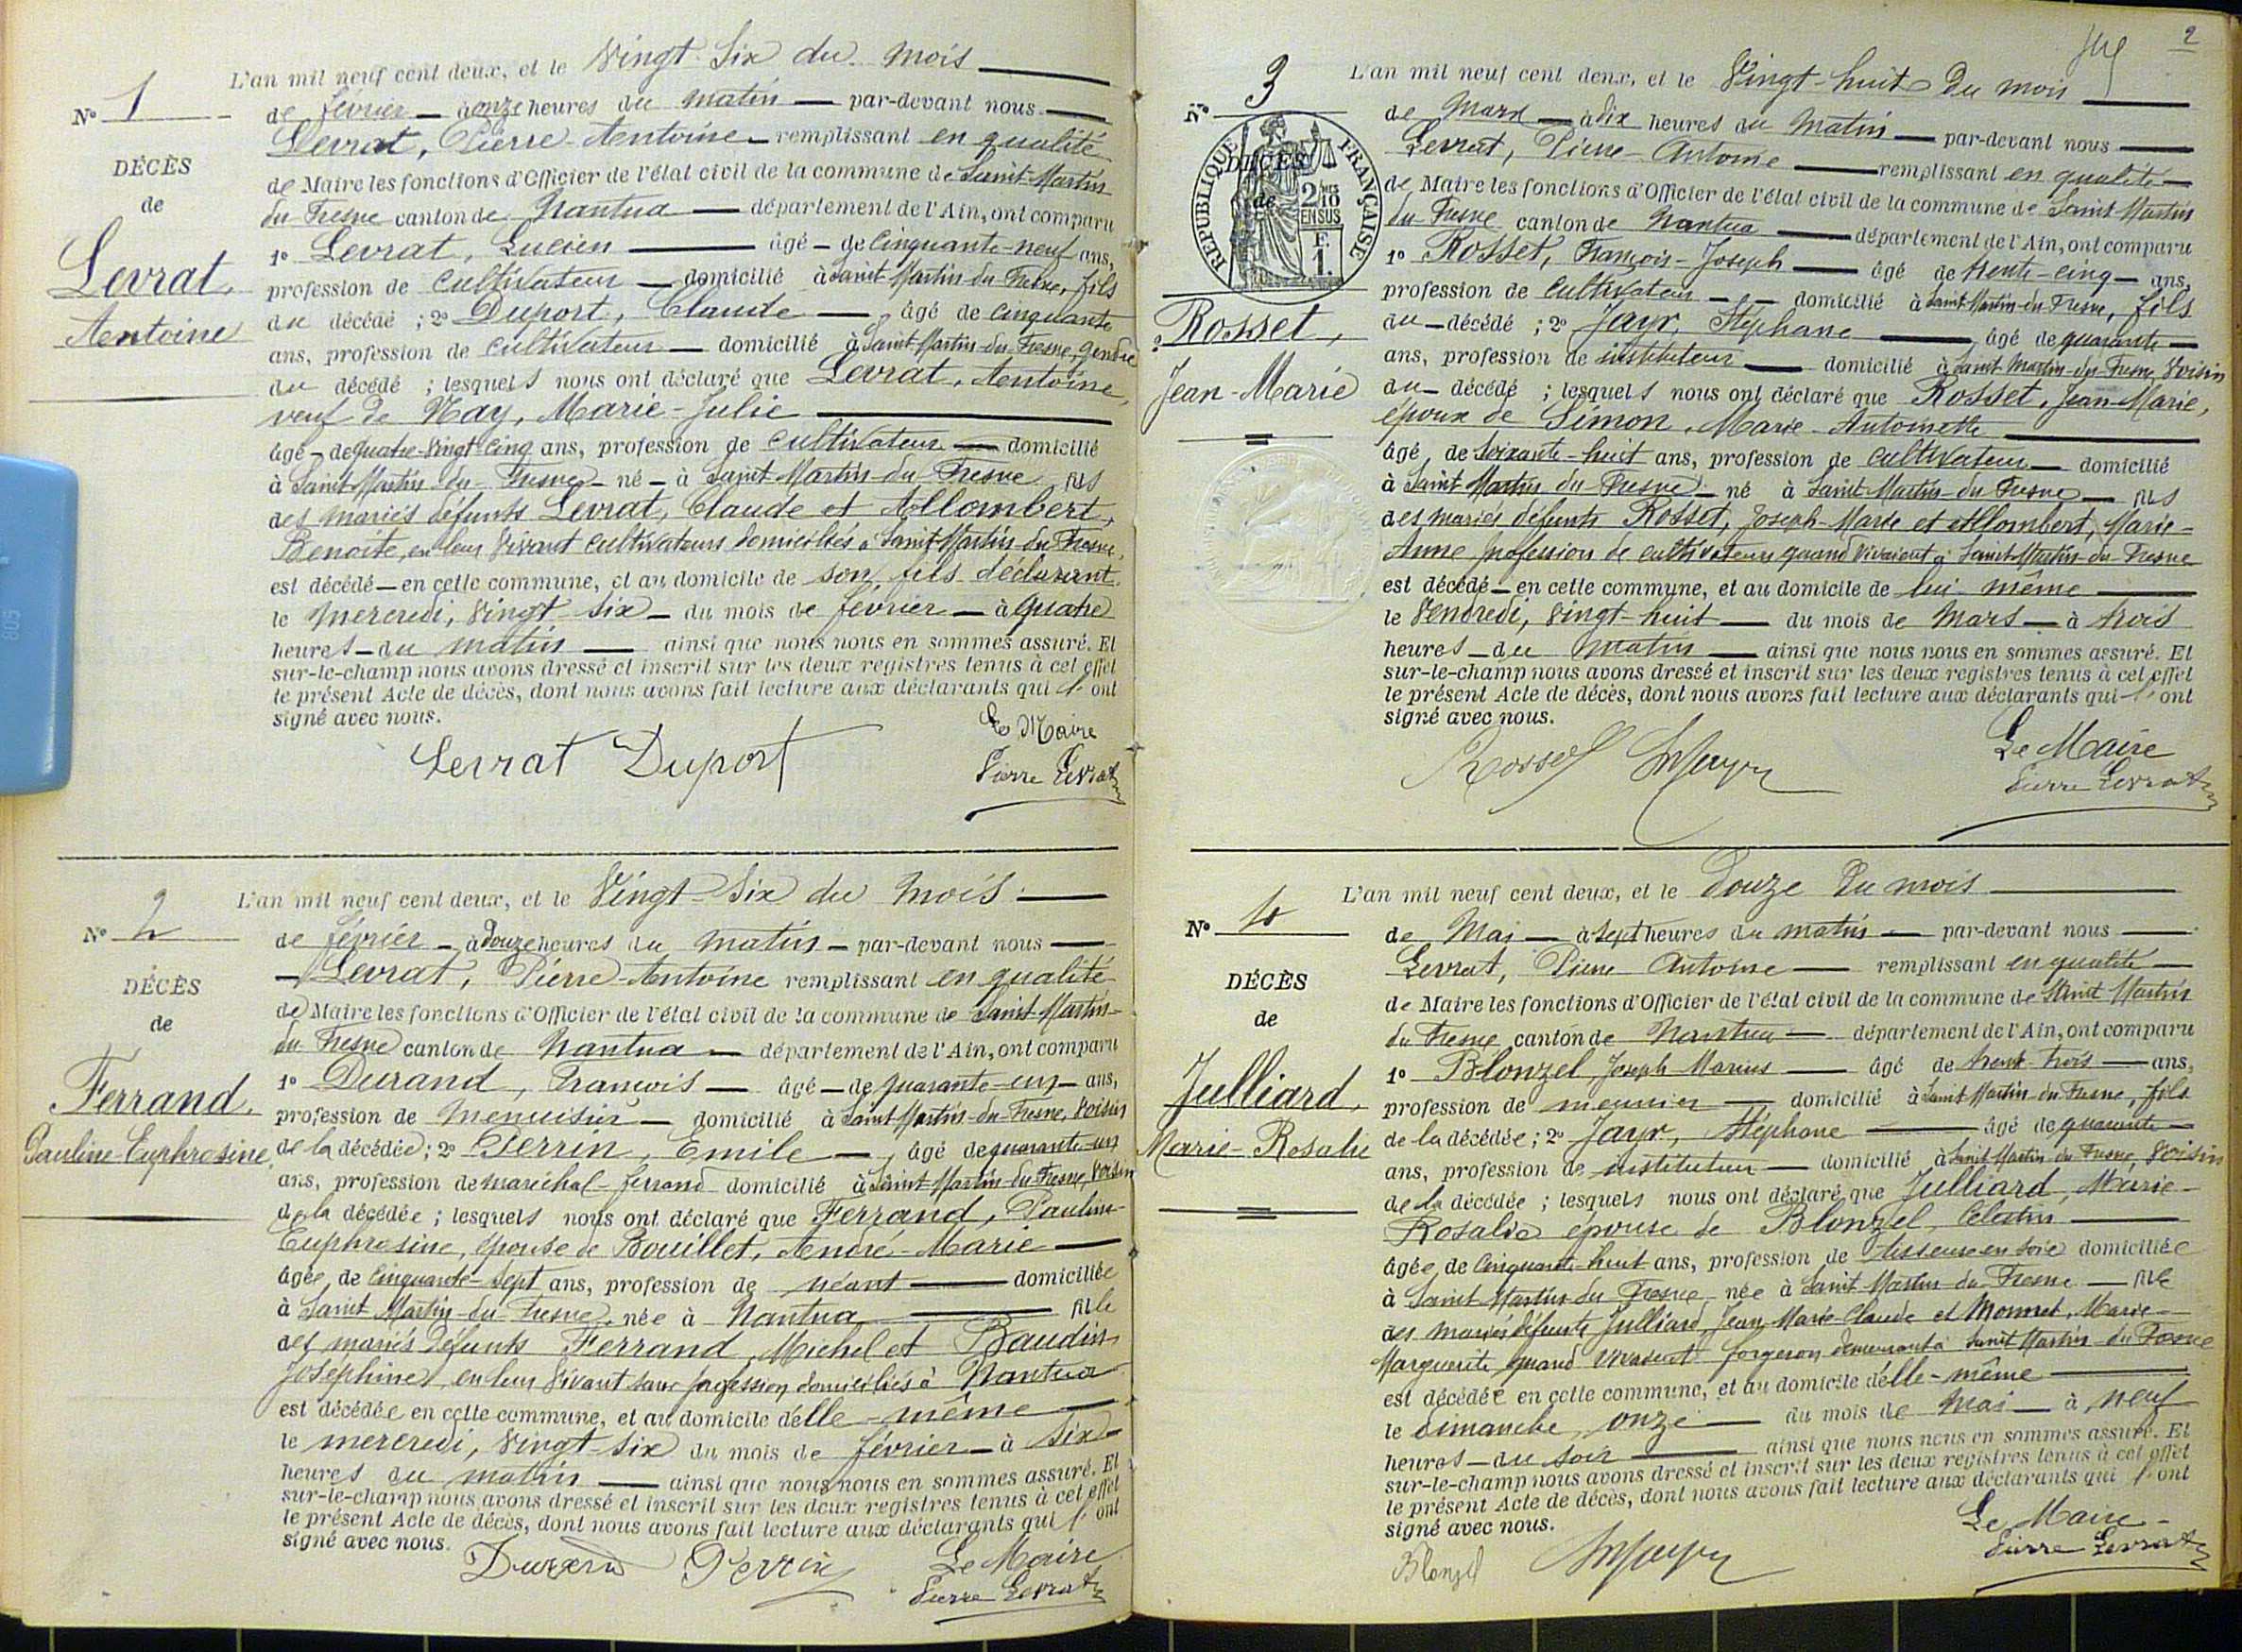 L'an mil neuf cent deux, et le Vingt-Six du mois
N° 1
de février à onze heures du matin par-devant nous
Levrat, Pierre-Antoine remplissant en qualité
de Maire les fonctions d'Officier de l'état civil de la commune de Saint-Martin
DÉCÈS
de
Levrat,
Antoine
du Fresne canton de Nantua département de l'Ain, ont comparu
1° Levrat, Lucien âgé de Cinquante-neuf ans,
profession de Cultivateur domicilié à Saint-Martin-du-Fresne, fils
du décédé ; 2° Duport, Claude âgé de Cinquante
ans, profession de Cultivateur domicilié à Saint-Martin-du-Fresne, gendre
du décédé ; lesquels nous ont déclaré que Levrat, Antoine,
veuf de May, Marie-Julie
âgé de quatre-Vingt-Cinq ans, profession de Cultivateur domicilié
à Saint-Martin-du-Fresne né à Saint-Martin-du-Fresne fils
des mariés défunts Levrat, Claude et Allombert,
Benoite, en leur Vivant Cultivateurs domiciliés à Saint-Martin-du-Fresne,
est décédé en cette commune, et au domicile de son fils déclarant
le Mercredi, Vingt-six du mois de février à quatre
heures du matin ainsi que nous nous en sommes assuré. Et
sur-le-champ nous avons dressé et inscrit sur les deux registres tenus à cet effet
le présent Acte de décès, dont nous avons fait lecture aux déclarants qui l'ont
signé avec nous.
Le Maire
Levrat Duport
Pierre Levrat
L'an mil neuf cent deux, et le Vingt-Six du mois
N° 2
de février à Douze heures du matin par-devant nous
Levrat, Pierre-Antoine remplissant en qualité
de Maire les fonctions d'Officier de l'état civil de la commune de Saint-Martin-
DÉCÈS
de
Ferrand,
Pauline-Euphrosine,
du Fresne canton de Nantua département de l'Ain, ont comparu
1° Durand, François âgé de quarante-un ans,
profession de menuisier domicilié à Saint-Martin-du-Fresne, Voisin
de la décédée ; 2° Perrin, Emile âgé de quarante-un
ans, profession de maréchal-ferrand domicilié à Saint-Martin-du-Fresne, Voisin
de la décédée ; lesquels nous ont déclaré que Ferrand, Pauline-
Euphrosine, épouse de Bouillet, André-Marie
âgée de Cinquante-Sept ans, profession de néant domiciliée
à Saint-Martin-du-Fresne née à Nantua fille
des mariés défunts Ferrand, Michel et Baudin
Joséphine, en leur Vivant sans profession domiciliés à Nantua
est décédée en cette commune, et au domicile d'elle-même
le mercredi, Vingt-six du mois de février à Six
heures du matin ainsi que nous nous en sommes assuré. Et
sur-le-champ nous avons dressé et inscrit sur les deux registres tenus à cet effet
le présent Acte de décès, dont nous avons fait lecture aux déclarants qui l'ont
signé avec nous.
Durand Perrin Le Maire
Pierre Levrat
2
L'an mil neuf cent deux, et le Vingt-huit du mois
N° 3
de Mars à dix heures du Matin par-devant nous
Levrat, Pierre-Antoine remplissant en qualité
de Maire les fonctions d'Officier de l'état civil de la commune de Saint-Martin
DÉCÈS
de
RÉPUBLIQUE FRANÇAISE
2/10 EN SUS
F. 1.
Rosset,
Jean-Marie
du Fresne canton de Nantua département de l'Ain, ont comparu
1° Rosset, François-Joseph âgé de trente-cinq ans,
profession de Cultivateur domicilié à Saint-Martin-du-Fresne, fils
du décédé ; 2° Jayr, Stéphane âgé de quarante
ans, profession de instituteur domicilié à Saint-Martin-du-Fresne, Voisin
du décédé ; lesquels nous ont déclaré que Rosset, Jean-Marie,
époux de Simon, Marie-Antoinette
âgé de Soixante-huit ans, profession de Cultivateur domicilié
à Saint-Martin du Fresne né à Saint-Martin-du-Fresne fils
des mariés défunts Rosset, Joseph-Marie et Allombert, Marie-
Anne profession de cultivateurs quand Vivaient à Saint-Martin-du-Fresne
est décédé en cette commune, et au domicile de lui même
le Vendredi, Vingt-huit du mois de Mars à trois
heures du matin ainsi que nous nous en sommes assuré. Et
sur-le-champ nous avons dressé et inscrit sur les deux registres tenus à cet effet
le présent Acte de décès, dont nous avons fait lecture aux déclarants qui l'ont
signé avec nous.
Rosset Le Maire
Pierre Levrat
L'an mil neuf cent deux, et le Douze du mois
N° 4
de Mai à sept heures du matin par-devant nous
Levrat, Pierre Antoine remplissant en qualité
de Maire les fonctions d'Officier de l'état civil de la commune de Saint Martin
DÉCÈS
de
Julliard,
Marie-Rosalie
du Fresne canton de Nantua département de l'Ain, ont comparu
1° Blonzel, Joseph Marius âgé de trente-trois ans,
profession de meunier domicilié à Saint-Martin-du-Fresne, fils
de la décédée ; 2° Jayr, Stéphane âgé de quarante
ans, profession de instituteur domicilié à Saint-Martin-du-Fresne, Voisin
de la décédée ; lesquels nous ont déclaré que Julliard, Marie-
Rosalie épouse de Blonzel, Célestin
âgée de Cinquante-huit ans, profession de tisseuse en soie domiciliée
à Saint-Martin du Fresne née à Saint-Martin du Fresne fille
des mariés défunts Julliard, Jean Marie Claude et Monnet, Marie-
Marguerite quand vivaient forgeron demeurant à Saint Martin-du-Fresne
est décédée en cette commune, et au domicile d'elle-même
le dimanche, onze du mois de Mai à neuf
heures du soir ainsi que nous nous en sommes assuré. Et
sur-le-champ nous avons dressé et inscrit sur les deux registres tenus à cet effet
le présent Acte de décès, dont nous avons fait lecture aux déclarants qui l'ont
signé avec nous.
Le Maire
Blonzel Pierre Levrat